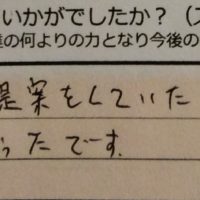 いかがでしたか？（
の何よりの力となり今後の
提案をしていた
ったです.